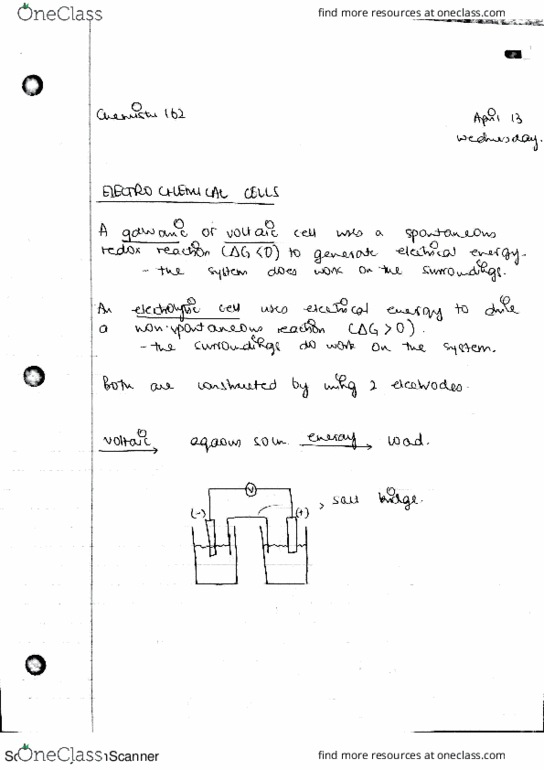 OneClass
find more resources at oneclass.com
Chemistry 162
April 13
Wednesday.
ELECTRO CHEMICAL CELLS
A galvanic or voltaic cell uses a spontaneous
redox reaction (ΔG<0) to generate electrical energy.
- the system does work on the surroundings.
An electrolytic cell uses electrical energy to drive
a non-spontaneous reaction (ΔG>0).
- the surroundings do work on the system.
Both are constructed by using 2 electrodes.
voltaic → aqaous soln. energy → load.
V
(-)
(+)
→ salt bridge.
OneClass
Scanner
find more resources at oneclass.com